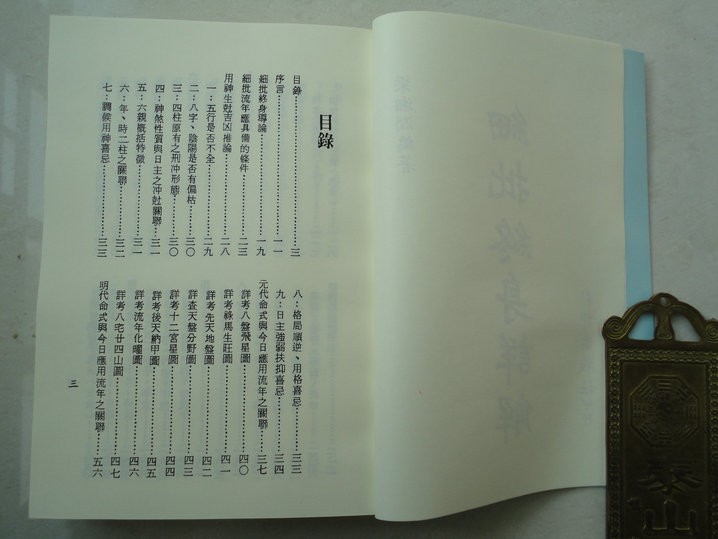 目錄
目錄………三
序言………一一
細批終身導論………一九
細批流年應具備的條件………二三
用神生尅吉凶推論………二八
一：五行是否不全………二九
二：八字、陰陽是否有偏枯………三〇
三：四柱原有之刑冲形態………三〇
四：神煞性質與日主之冲尅關聯………三一
五：六親概括特徵………三一
六：年、時二柱之關聯………三二
七：調候用神喜忌………三三
八：格局順逆、用格喜忌………三三
九：日主強弱扶抑喜忌………三四
元代命式與今日應用流年之關聯………三七
詳考八盤飛星圖………四〇
詳考祿馬生旺圖………四一
詳考先天地盤圖………四二
詳查天盤分野圖………四三
詳考十二宮星圖………四四
詳考後天納甲圖………四五
詳考流年化曜圖………四六
詳考八宅廿四山圖………四七
明代命式與今日應用流年之關聯………五六
三
細批終身詳解
泰山